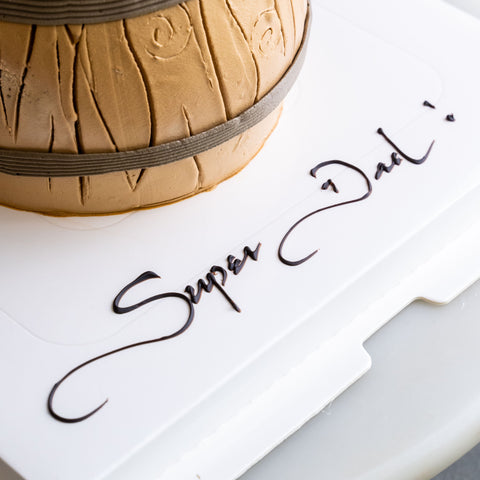 Super Dad!